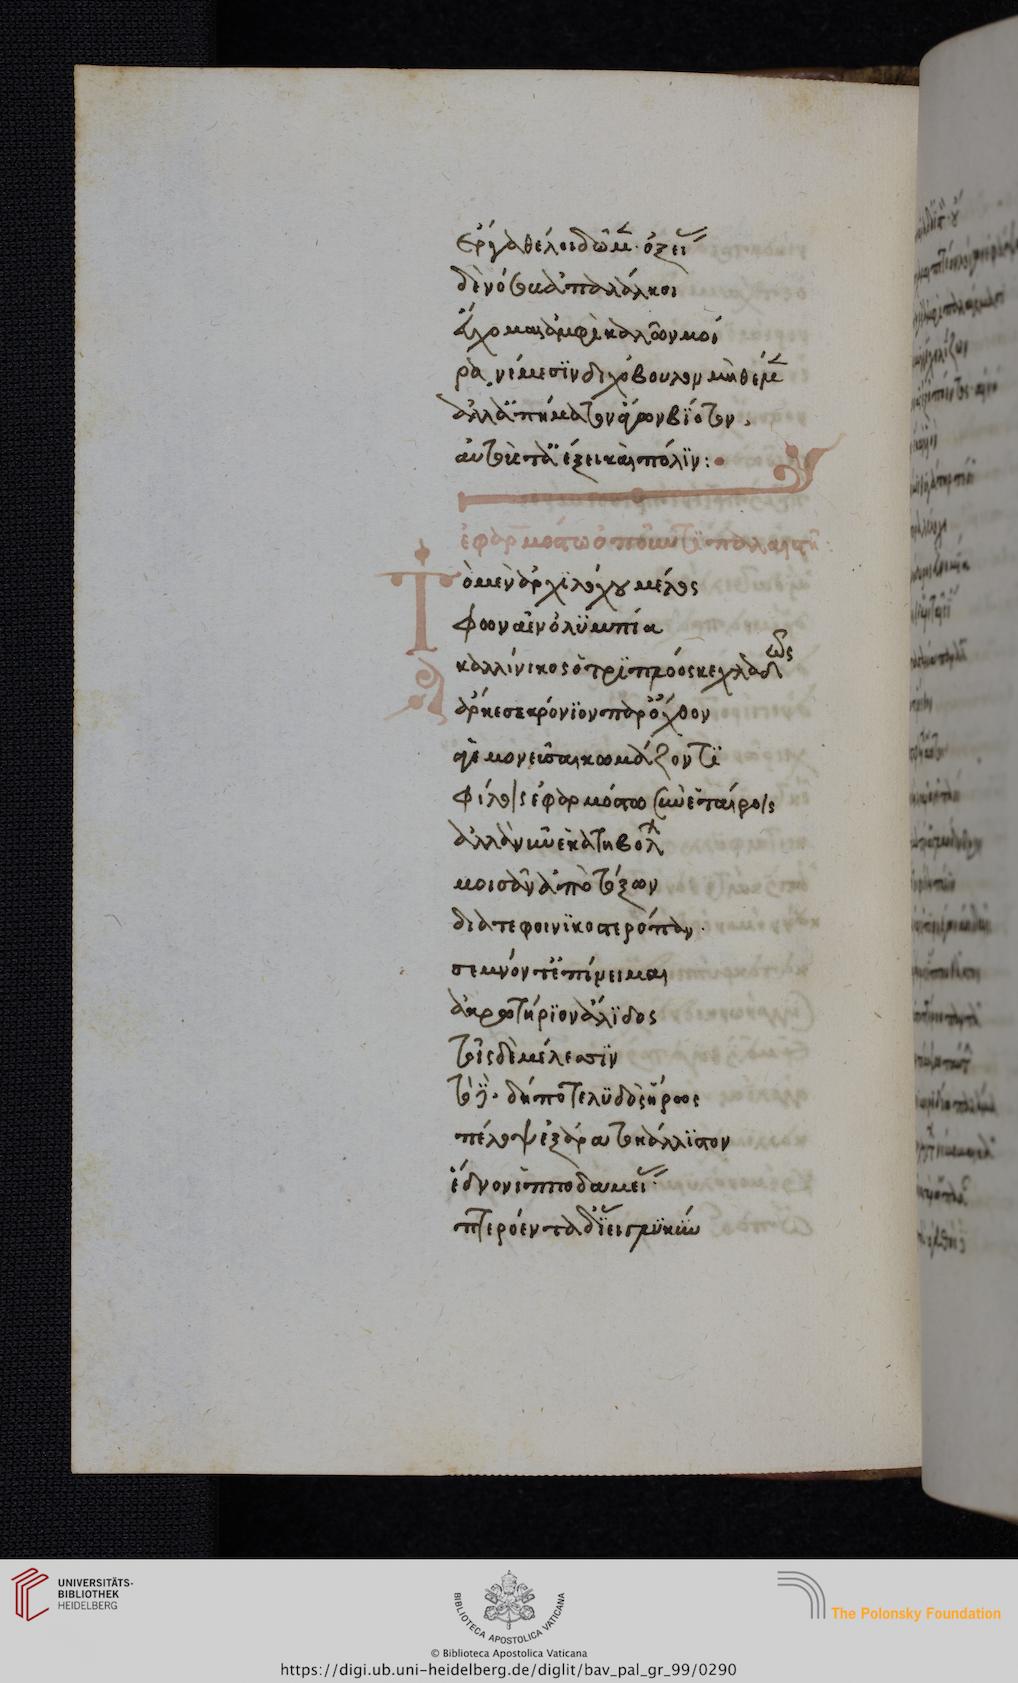 ἔργα θέλοι δῶμ· ὀξεί
δε νότκ ἀπαλάλκοι
εὔχομαι ἀμφὶ καλῶν μοί
ρα, νέμεσϊν διχόβουλον μὴ θέμ
ἀλλ' ἀπήματον ἄγων βϊότον,
αὐτούς τ' ἀέξει καὶ πόλϊν:
ἐφαρμοστῷ ὀπουντίῳ παλαιστῇ:
Τὸ μὲν ἀρχϊλόχου μέλος
φωνᾶεν ὀλϋμπία
καλλίνικος ὁ τρϊπλόος κεχλαδὼς
ἄρκεσε κρόνϊον παρ' ὄχθον
ἁγεμονεῦσαι κωμάζοντϊ
φίλοις ἐφαρμόστῳ σὺν ἑταίροις
ἀλλὰ νῦν ἑκαταβόλ
μοισᾶν ἀπὸ τόξων
δία τε φοινϊκοστερόπαν·
σεμνόν τ' ἐπίνειμαι
ἀκρωτήρϊον ἄλϊδος
τοῖσδε μέλεσϊν
τὸ δήποτε λϋδὸς ἥρως
πέλοψ ἐξάρατο κάλλϊστον
ἕδνον ἱπποδαμεί·
πτερόεντα δ' ἵει γλϋκὺν
UNIVERSITÄTS-
BIBLIOTHEK
HEIDELBERG
BIBLIOTECA APOSTOLICA VATICANA
The Polonsky Foundation
© Biblioteca Apostolica Vaticana
https://digi.ub.uni-heidelberg.de/diglit/bav_pal_gr_99/0290